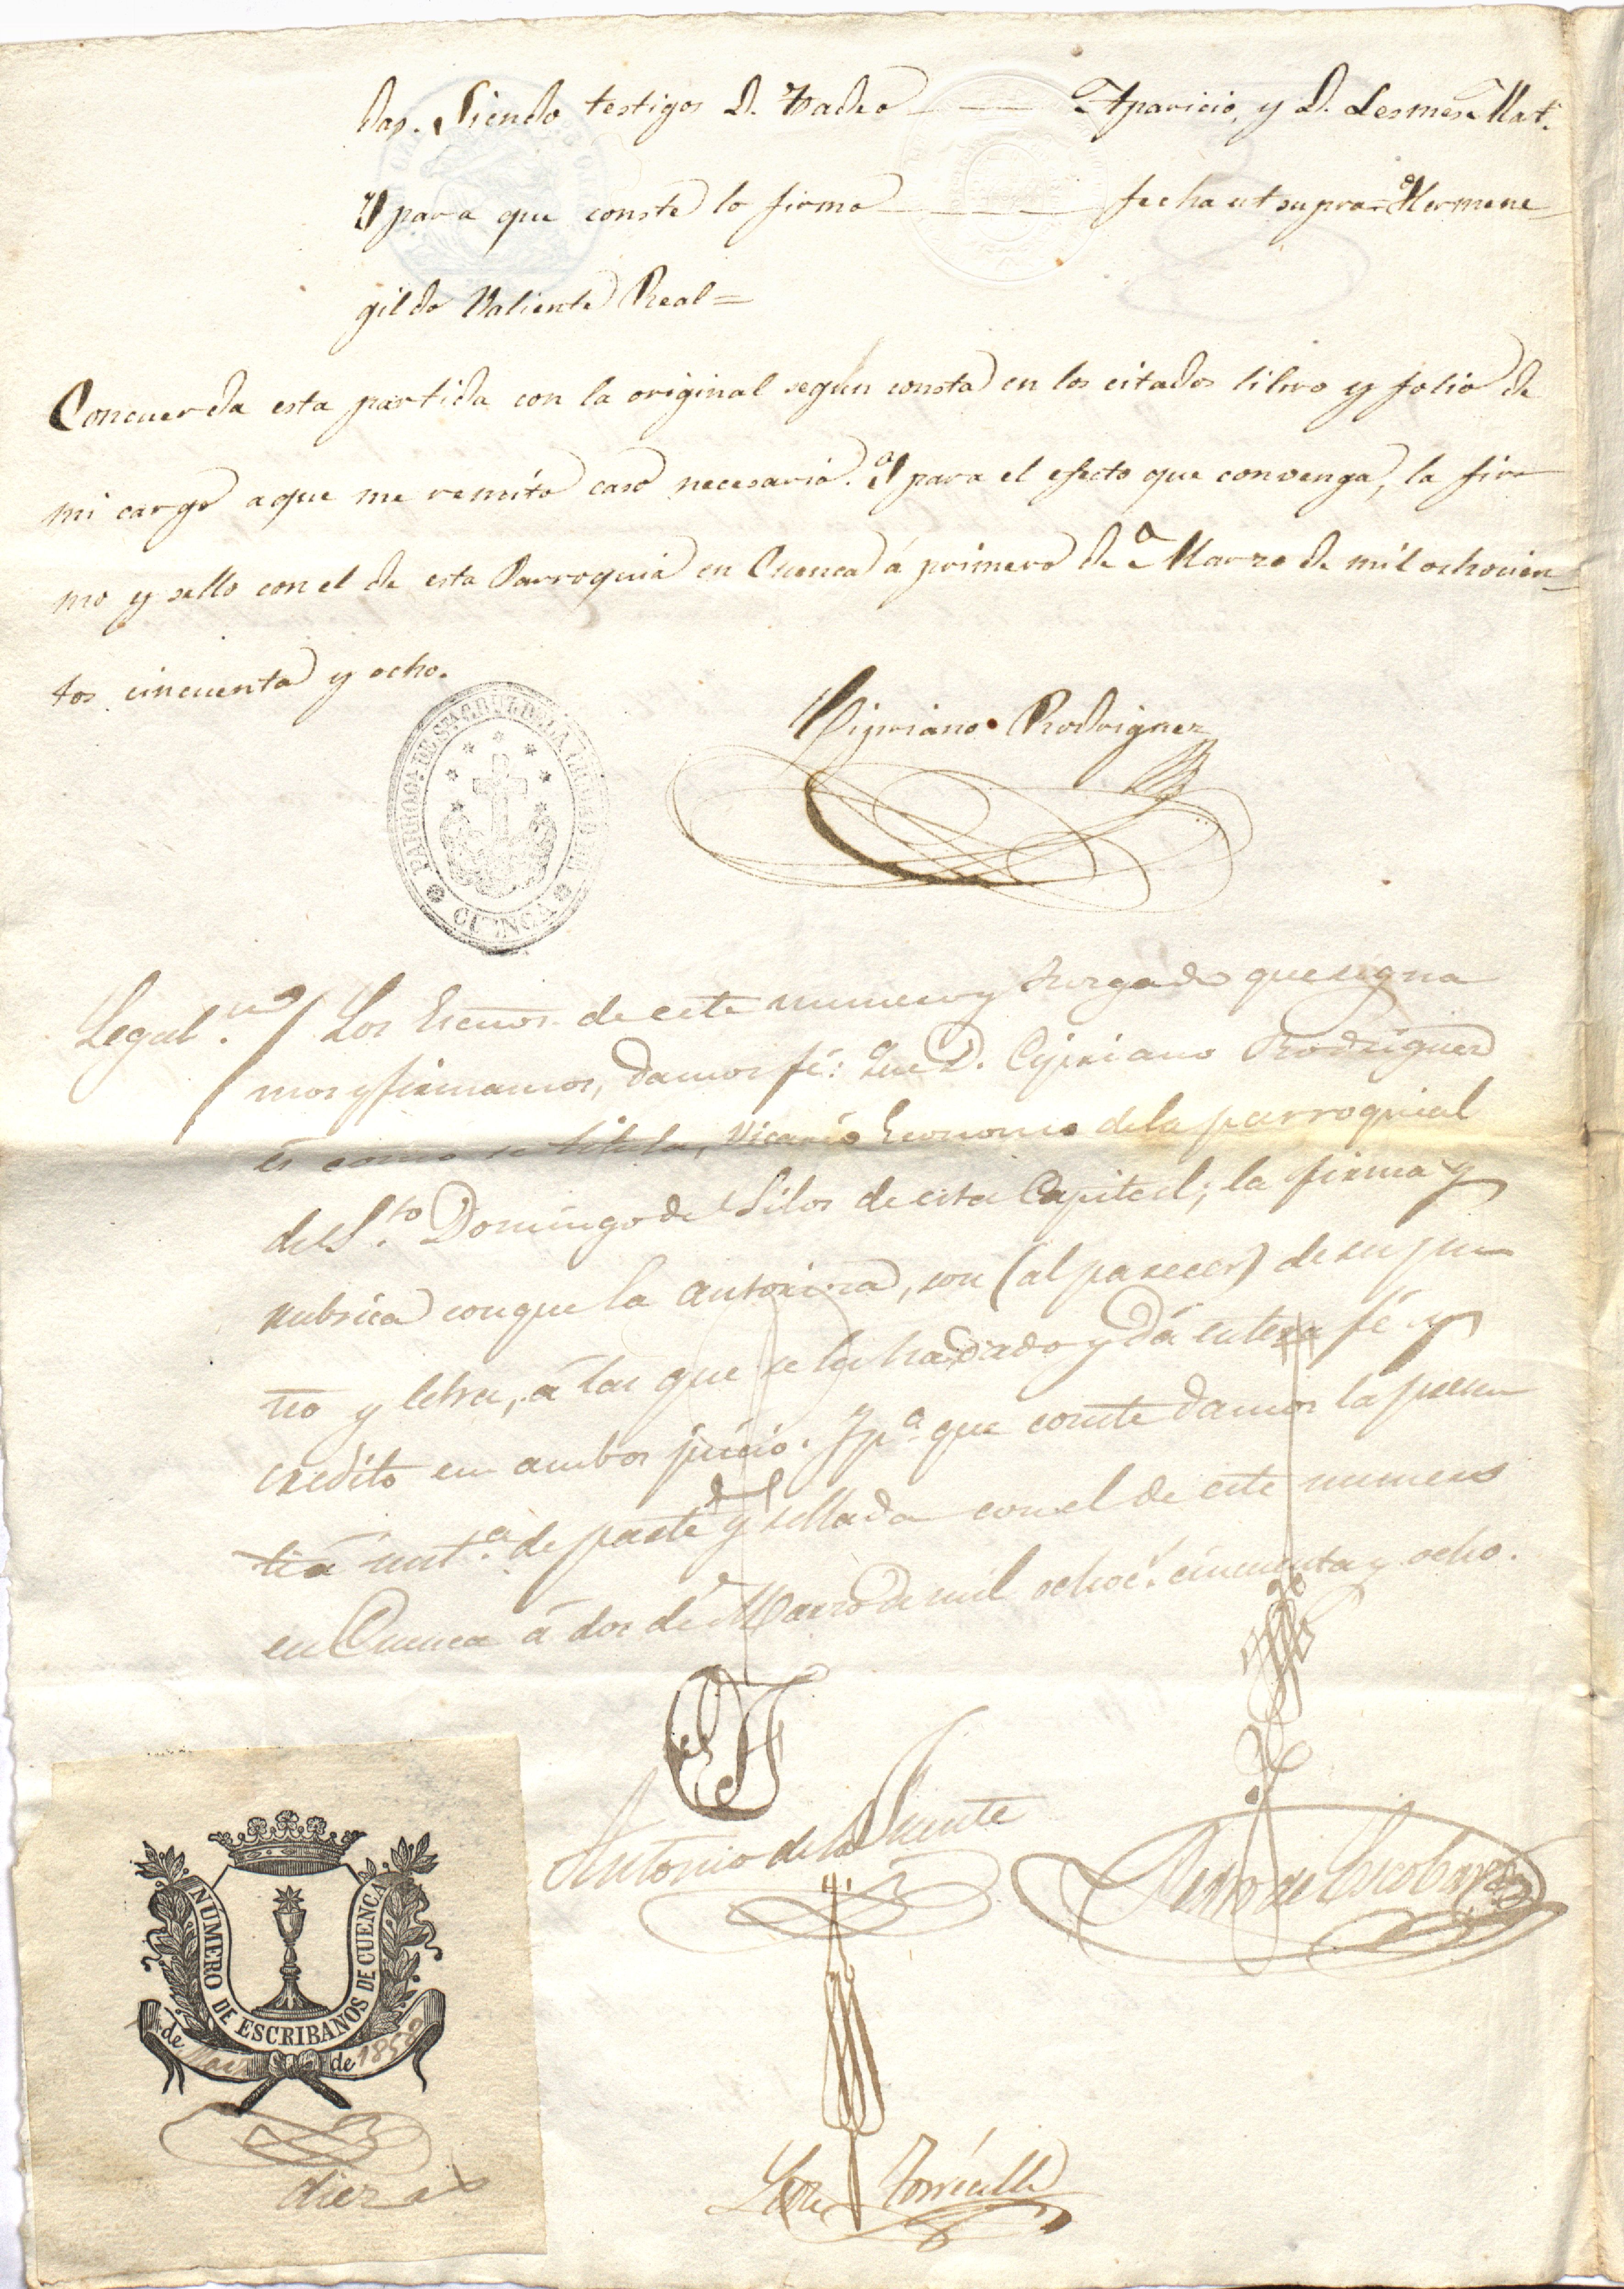 das. Siendo testigos D. Tadeo Aparicio, y D. Lesmes Mat.
Y para que conste lo firmo fecha ut supra = Hermene
gildo Valiente Real =
Concuerda esta partida con la original según consta en los citados libro y folio de
mi cargo a que me remito caso necesario. Y para el efecto que convenga, la fir
mo y sello con el de esta Parroquia en Cuenca á primero de Marzo de mil ochocien
tos cincuenta y ocho.
Cipriano Rodriguez
CUENCA
Legal.on / Los Escnos. de este numero y Juzgado que signa
mos y firmamos, damos fé: Que D. Cipriano Rodriguez
es como se titula, Vicario Economo de la parroquial
de S.to Domingo de Silos de esta Capital; la firma y
rubrica con que la autoriza, son (al parecer) de su pu
ño y letra, á las que se les ha dado y dá entera fé y
credito en ambos juicio. Y p.a que conste damos la presen
te á inst.a de parte y sellada con el de este numero
en Cuenca á dos de Marzo de mil ochoc.s cincuenta y ocho.
Antonio de la Fuente
Pedro de Escobar
NÚMERO DE ESCRIBANOS DE CUENCA
de Marzo de 1858
diez
Torrecilla